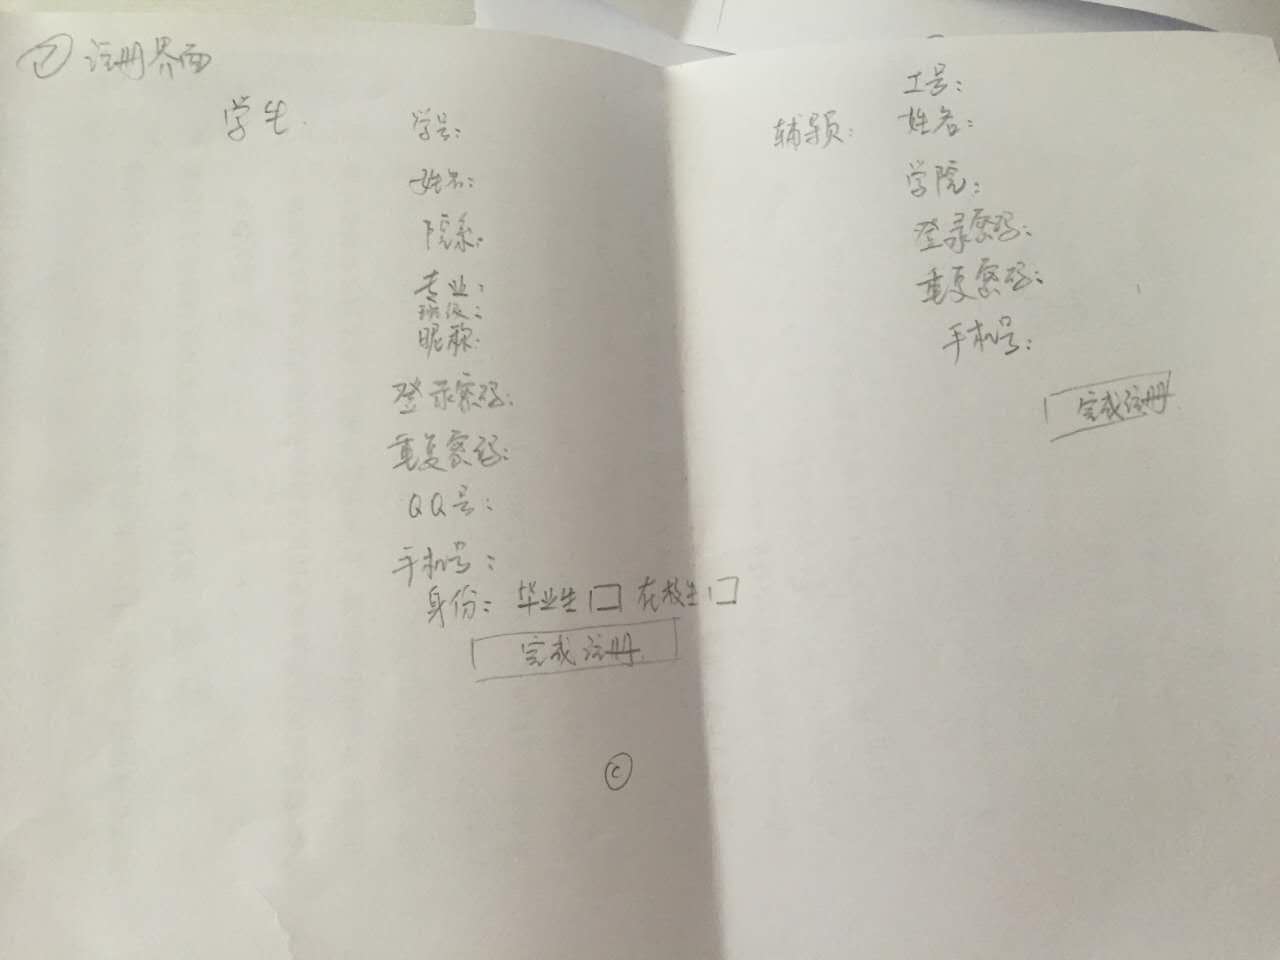 ② 注册界面
学生.
学号:
姓名:
院系:
专业:
班级:
昵称:
登录密码:
重复密码:
QQ号:
手机号:
身份: 毕业生 □ 在校生 □
完成注册.
©
辅导员:
工号:
姓名:
学院:
登录密码:
重复密码:
手机号:
完成注册.